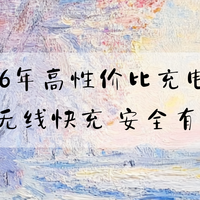 6年高性价比充电
无线快充 安全有